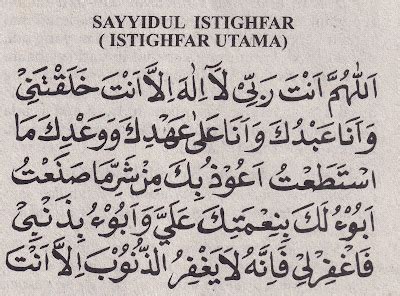 SAYYIDUL ISTIGHFAR
( ISTIGHFAR UTAMA)
اَللّٰهُمَّ اَنْتَ رَبِّيْ لَآ اِلٰهَ اِلَّآ اَنْتَ خَلَقْتَنِيْ
وَاَنَا عَبْدُكَ وَاَنَا عَلٰى عَهْدِكَ وَوَعْدِكَ مَا
اسْتَطَعْتُ اَعُوْذُ بِكَ مِنْ شَرِّ مَا صَنَعْتُ
اَبُوْءُ لَكَ بِنِعْمَتِكَ عَلَيَّ وَاَبُوْءُ بِذَنْبِيْ
فَاغْفِرْلِيْ فَاِنَّهُ لَا يَغْفِرُ الذُّنُوْبَ اِلَّآ اَنْتَ